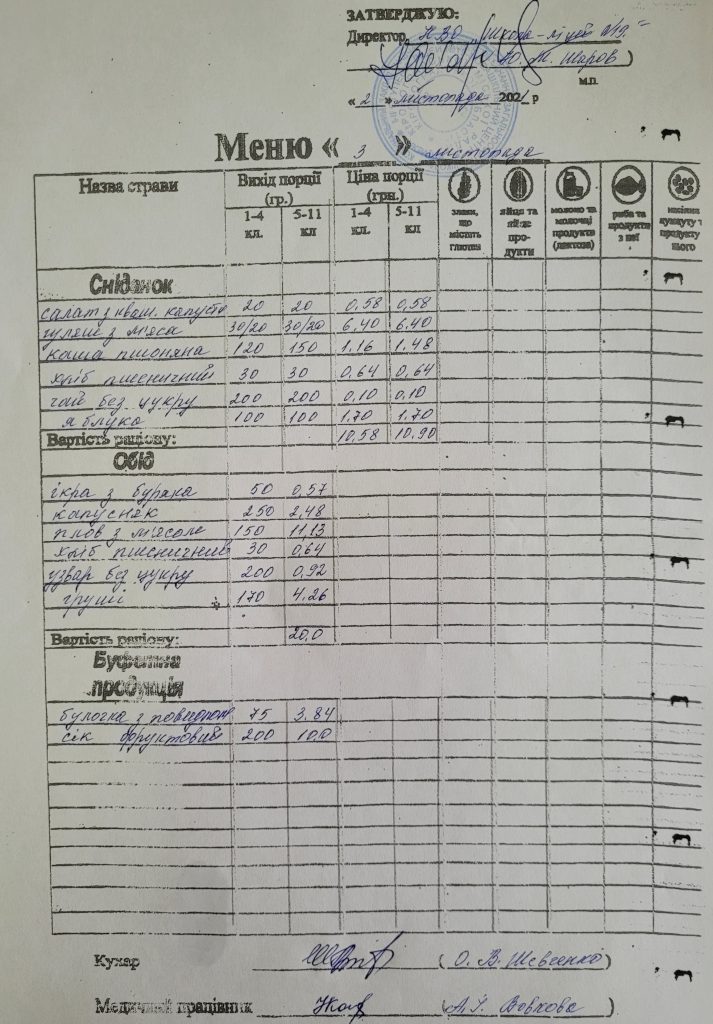 ЗАТВЕРДЖУЮ:
Директор НВО „Школа-ліцей
(Ю. М. Шаров)
м.п.
« 2 » листопада 2021 р
Меню « 3 » листопада
Назва страви Вихід порції (гр.) Ціна порції (грн.) злаки, що містять глютен яйця та яйце продукти молоко та молочні продукти (лактоза) риба та продукти з неї насіння кунжуту т продукту нього
1-4 кл. 5-11 кл 1-4 кл. 5-11 кл.
Сніданок
салат з кваш. капусти 20 20 0,58 0,58
гуляш з м'яса 30/20 30/20 6.40 6.40
каша пшоняна 120 150 1.16 1.48
хліб пшеничний 30 30 0,64 0,64
чай без цукру 200 200 0,10 0,10
яблуко 100 100 1.70 1.70
Вартість раціону: 10,58 10,90
Обід
ікра з буряка 50 0,57
капусняк 250 2,48
плов з м'ясом 150 11,13
хліб пшеничний 30 0,64
узвар без цукру 200 0,92
груші 170 4.26
Вартість раціону: 20,0
Буфетна продукція
булочка з повидлом 75 3.84
сік фруктовий 200 10,0
Кухар (О. В. Шевченко)
Медичний працівник (А. І. Вовкова)